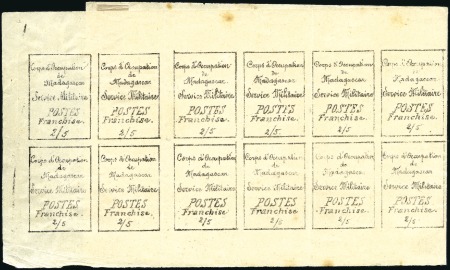 Corps d'Occupation
de
Madagascar
Service Militaire
POSTES
Franchise.
2/5
Corps d'Occupation
de
Madagascar
Service Militaire
POSTES
Franchise.
2/5
Corps d'Occupation
de
Madagascar
Service Militaire
POSTES
Franchise.
2/5
Corps d'Occupation
de
Madagascar
Service Militaire
POSTES
Franchise.
2/5
Corps d'Occupation
de
Madagascar
Service Militaire
POSTES
Franchise.
2/5
Corps d'Occupation
de
Madagascar
Service Militaire
POSTES
Franchise.
2/5
Corps d'Occupation
de
Madagascar
Service Militaire
POSTES
Franchise.
2/5
Corps d'Occupation
de
Madagascar
Service Militaire
POSTES
Franchise.
2/5
Corps d'Occupation
de
Madagascar
Service Militaire
POSTES
Franchise.
2/5
Corps d'Occupation
de
Madagascar
Service Militaire
POSTES
Franchise.
2/5
Corps d'Occupation
de
Madagascar
Service Militaire
POSTES
Franchise.
2/5
Corps d'Occupation
de
Madagascar
Service Militaire
POSTES
Franchise.
2/5